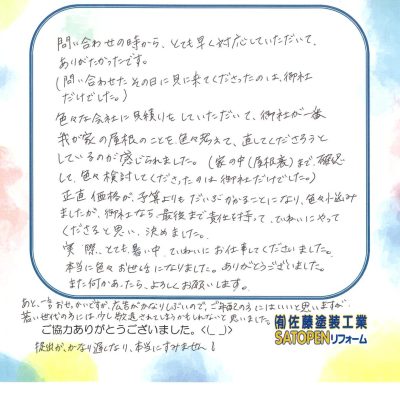 問い合わせの時から、とても早く対応していただいて、
ありがたかったです。
(問い合わせたその日に見に来てくださったのは、御社
だけでした。)
色々な会社に見積りをしていただいて、御社が一番
我が家の屋根のことを色々考えて、直してくださろうと
しているのが感じられました。(家の中(屋根裏)まで確認
して、色々検討してくださったのは御社だけでした。)
正直価格が予算よりもだいぶかかることになり、色々悩み
ましたが、御社なら最後まで責任を持って、ていねいにやって
くださると思い、決めました。
実際、とても暑い中、ていねいにお仕事してくださいました。
本当に色々お世話になりました。ありがとうございました。
また何かあったら、よろしくお願いします。
あと、一言おせっかいですが、広告がかなりしぶいので、ご年配の方にはいいと思いますが
若い世代の方には少し敬遠されてしまうかもしれないと思いました。
ご協力ありがとうございました。<(_ _)>
(有)佐藤塗装工業
SATOPENリフォーム
提出が、かなり遅くなり、本当にすみません!